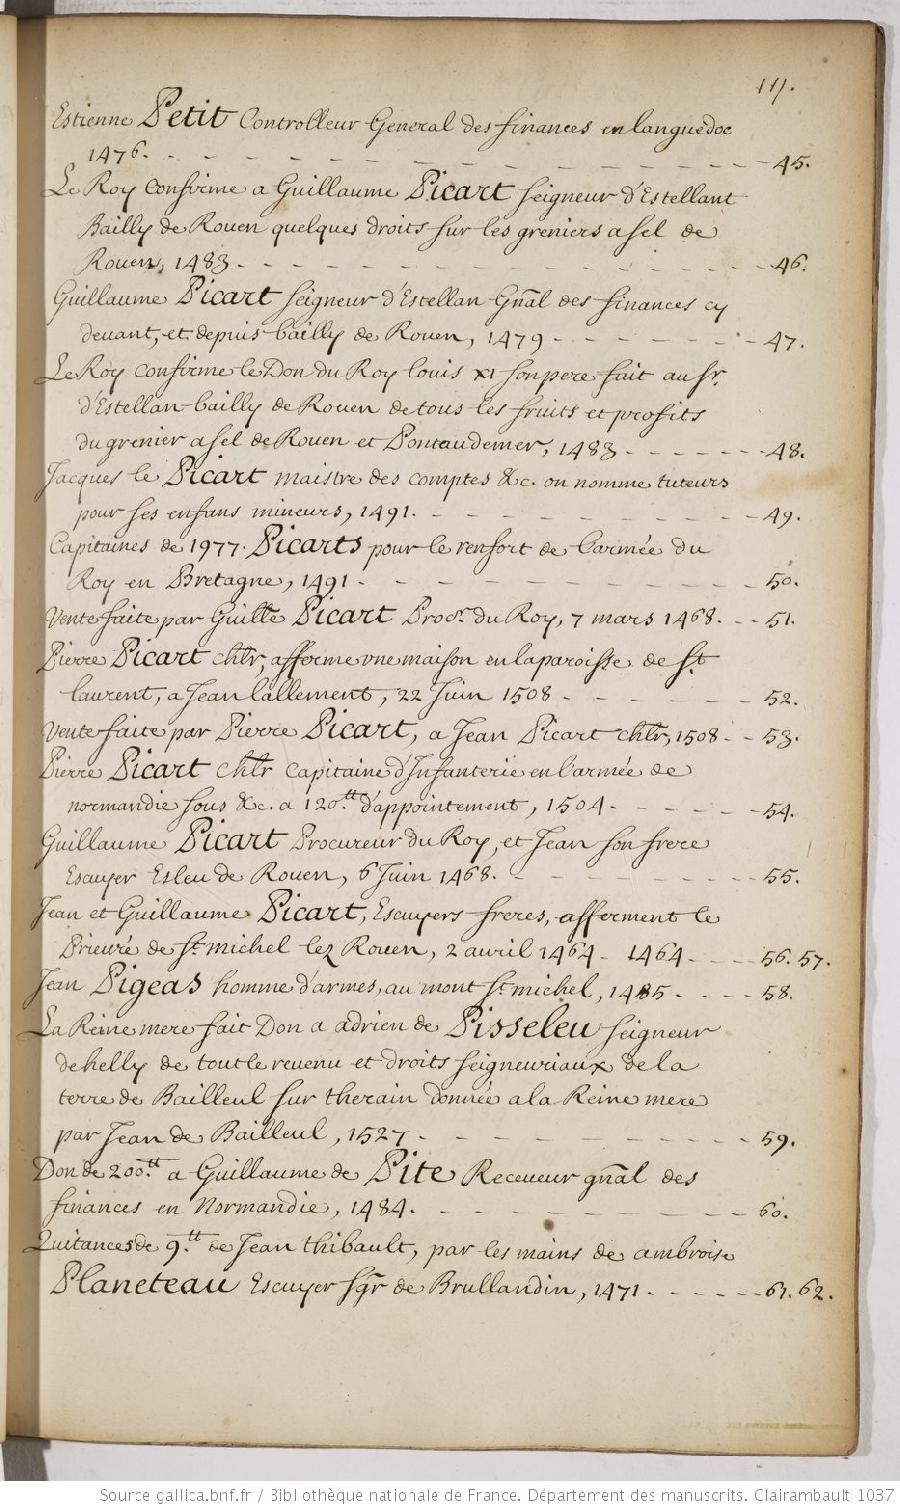 117.
Estienne Petit Controlleur General des finances en languedoc
1476. - - - - - - - - - - - - 45.
Le Roy confirme a Guillaume Picart seigneur d'Estellant
Bailly de Rouen quelques droits sur les greniers a sel de
Rouen, 1483 - - - - - - - - - - - - 46.
Guillaume Picart seigneur d'Estellan Gñal des finances cy
devant, et depuis bailly de Rouen, 1479 - - - - - - 47.
Le Roy confirme le Don du Roy louis XI son pere fait au sr.
d'Estellan bailly de Rouen de tous les fruits et profits
du grenier a sel de Rouen et Pontaudemer, 1483 - - - - - - 48.
Jacques le Picart maistre des comptes &c. on nomme tuteurs
pour ses enfans mineurs, 1491. - - - - - - - - - 49.
Capitaines de 1977. Picarts pour le renfort de l'armée du
Roy en Bretagne, 1491 - - - - - - - - - - 50.
Vente faite par Guille Picart Procr. du Roy, 7 mars 1468. - - 51.
Pierre Picart chlr, afferme vne maison en la paroisse de St
laurent, a Jean lallement, 22 Juin 1508 - - - - - - 52.
Vente faite par Pierre Picart, a Jean Picart chlr, 1508 - - 53.
Pierre Picart chlr Capitaine d'Infanterie en l'armée de
normandie sous &c. a 120.tt d'appointement, 1504 - - - - - - 54.
Guillaume Picart Procureur du Roy, et Jean son frere
Escuyer Esleu de Rouen, 6 Juin 1468. - - - - - - - - 55.
Jean et Guillaume Picart, Escuyers freres, afferment le
Prieuré de St. michel lez Rouen, 2 avril 1464 - 1464 - - - - 56. 57.
Jean Pigeas homme d'armes, au mont St. michel, 1485 - - - - 58.
La Reine mere fait Don a adrien de Pisseleu seigneur
de helly de tout le revenu et droits seigneuriaux de la
terre de Bailleul sur therain donnée a la Reine mere
par Jean de Bailleul, 1527 - - - - - - - - - - 59.
Don de 200.tt a Guillaume de Pite Receueur gñal des
finances en Normandie, 1484. - - - - - - - - - 60.
Quitances de 9.tt de Jean thibault, par les mains de ambroise
Planeteau Escuyer sgr de Brullandin, 1471 - - - - - - 61. 62.
Source gallica.bnf.fr / Bibliothèque nationale de France. Département des manuscrits. Clairambault 1037